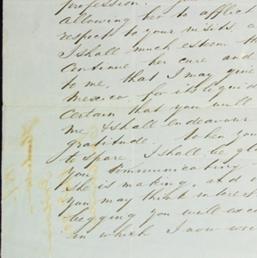 profession.
allowing her to afflict
respect to your visits, a
I shall much esteem th
continue her care and
to me, that I may give
mexico, for its liquid
Certain that you will
me, I shall endeavour
gratitude. When you
to spare I shall be gla
you communicating
she is making, and
you may think interes
begging you will exc
in which I now wri